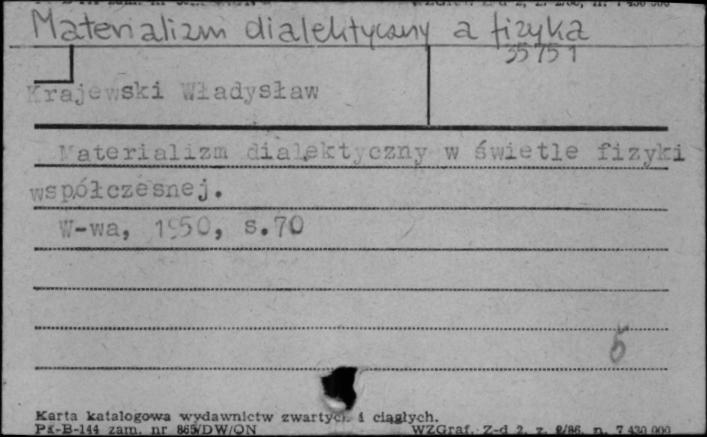 Materializm dialektyczny a fizyka
35751
Krajewski Władysław
Materializm dialektyczny w świetle fizyki
współczesnej.
W-wa, 1950, s.70
5
Karta katalogowa wydawnictw zwartych i ciągłych.
Pu-B-144 zam. nr 865/DW/ON WZGraf. Z-d 2, z. 2/86, n. 7 430 000